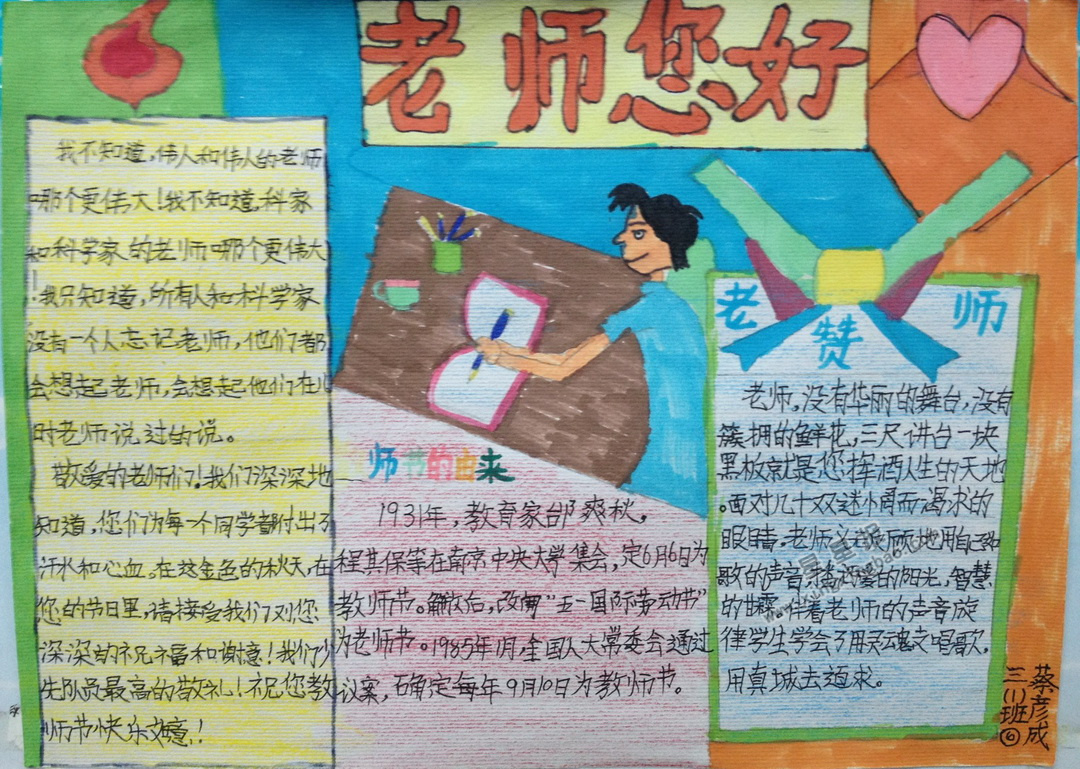 老师您好
我不知道，伟人和伟人的老师
哪个更伟大！我不知道，科家
和科学家的老师哪个更伟大
！我只知道，所有人和科学家
没有一个人忘记老师，他们都
会想起老师，会想起他们在儿
时老师说过的说。
敬爱的老师们！我们深深地
知道，您们为每一个同学都付出了
汗水和心血。在这金色的秋天，在
您的节日里，请接受我们对您
深深的祝福和谢意！我们少
先队员最高的敬礼！祝您教
师节快乐
师节的由来
1931年，教育家邰爽秋。
程其保等在南京中央大学集会，定6月6日为
教师节。解放后，改用“五一国际劳动节”
为老师节。1985年1月，全国人大常委会通过
议案，确定每年9月10日为教师节。
老师赞
老师，没有华丽的舞台，没有
簇拥的鲜花，三尺讲台一块
黑板就是您挥洒人生的天地
。面对几十双迷惘而渴求的
眼睛，老师义无反顾地用自己
的声音播洒爱的阳光，智慧
的甘霖。伴着老师的声音旋
律学生学会了用灵魂之唱歌，
用真城去追求。
蔡彦成
三(1)班⑥